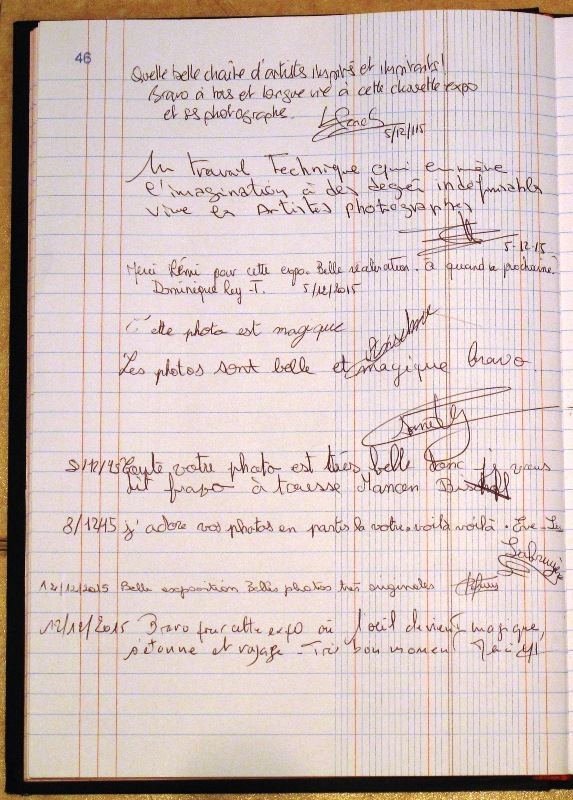 46
Quelle belle chaîne d'artistes inspirés et inspirants!
Bravo à tous et longue vie à cette chouette expo
et ses photographe.
5/12/15
Un travail Technique qui emmène
l'imagination à des degré indéfinissables
vive les Artistes photographes
5-12-15
Merci Rémi pour cette expo. Belle réalisation. à quand la prochaine?
Dominique Rey-T. 5/12/2015
Cette photo est magique
Les photos sont belle et magique bravo.
/12/15 toute votre photo est très belle donc je vous
dit bravo à
8/12/15 j'adore vos photos en partis la votre. voilà voilà. Eve-
12/12/2015 Belle exposition Belles photos très originales
12/12/2015 Bravo pour cette expo où l'oeil devient magique,
s'étonne et voyage - Très bon moment Merci